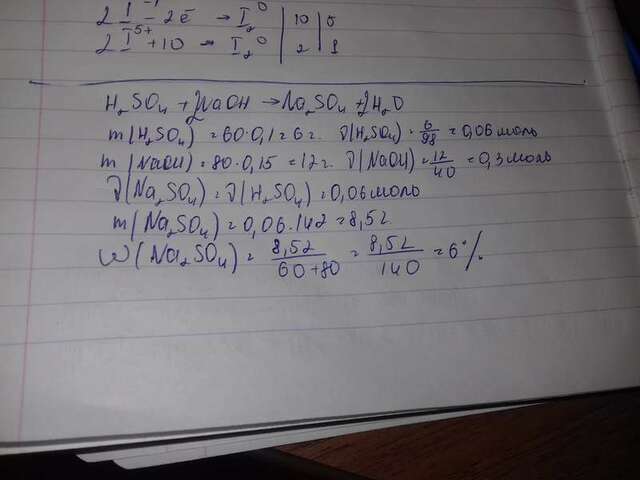 2I⁻¹ - 2ē → I₂⁰ | 10 | 5
2I⁵⁺ + 10 → I₂⁰ | 2 | 1
H₂SO₄ + 2NaOH → Na₂SO₄ + 2H₂O
m(H₂SO₄) = 60·0,1 = 6 г. ν(H₂SO₄) = 6/98 = 0,06 моль
m(NaOH) = 80·0,15 = 12 г. ν(NaOH) = 12/40 = 0,3 моль
ν(Na₂SO₄) = ν(H₂SO₄) = 0,06 моль
m(Na₂SO₄) = 0,06·142 = 8,52
ω(Na₂SO₄) = 8,52/60+80 = 8,52/140 = 6%